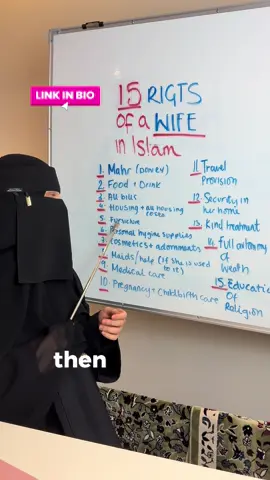 LINK IN BIO
15 RIGTS
of a WIFE
in Islam
1. Mahr (DOWER)
2. Food + Drink
3. All bills
4. Housing + all housing
costs
5.
6. Personal hygine supplies
7. Cosmetics + adornments
8. Maids/help (If she is used
to it)
9. Medical care
10. Pregnancy + Childbirth care
11. Travel
Provision
12. Security in
her home
13. Kind treatment
14. Full autonomy
of
wealth
15. Education
Of
Religion
then